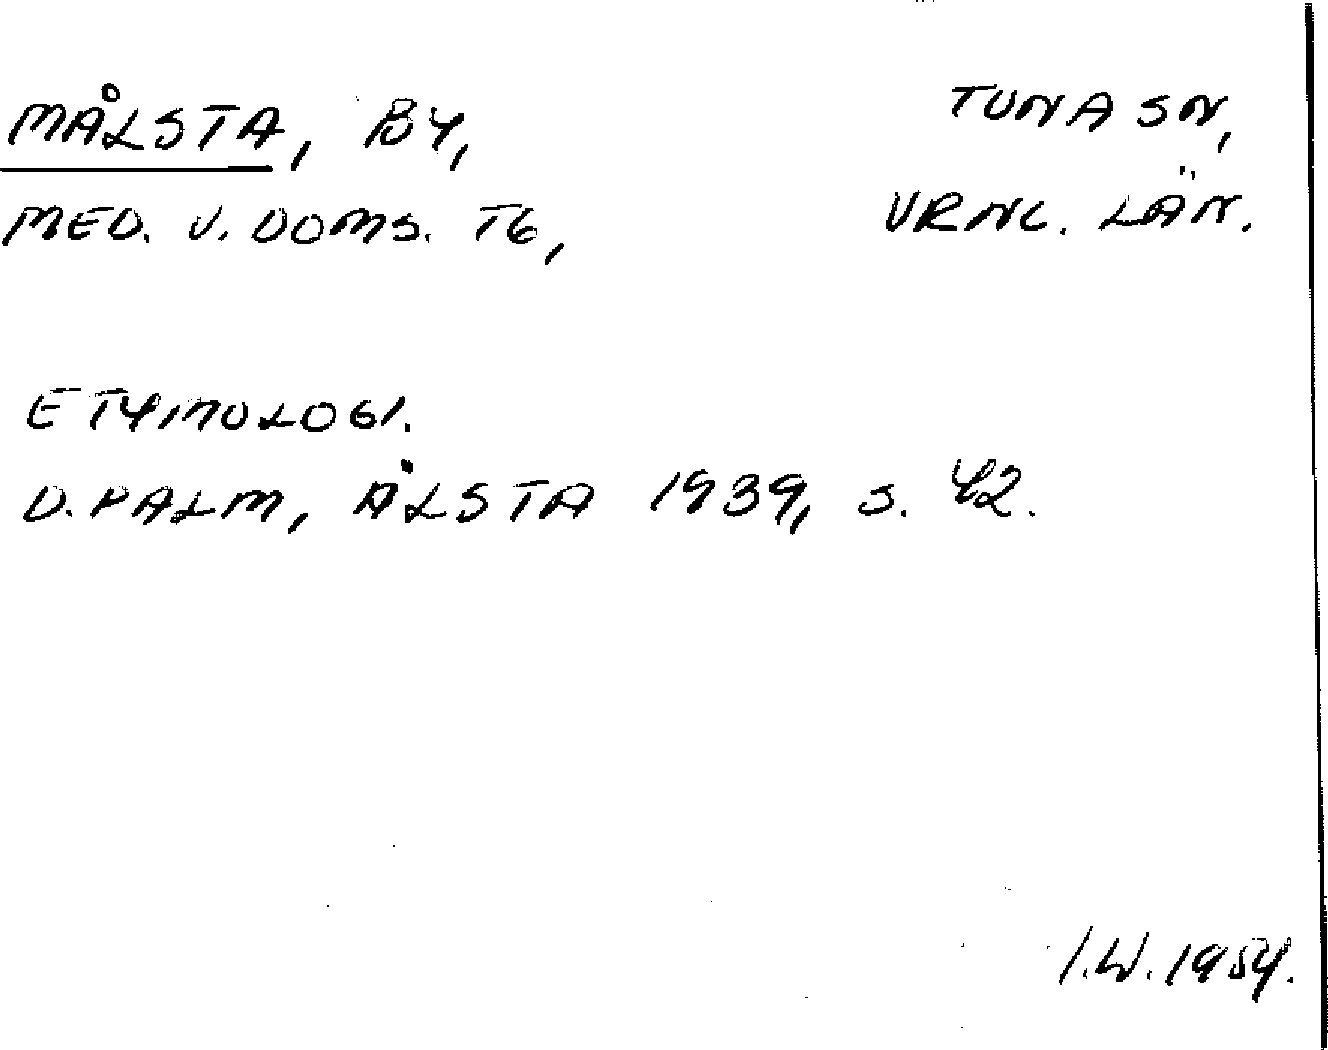 MÅLSTA, BY,
TUNA SN,
MED. V. DOMS. TG,
VRNL. LÄN.
ETYMOLOGI.
D. PALM, ÅLSTA 1939, S. 42.
I.W. 1954.